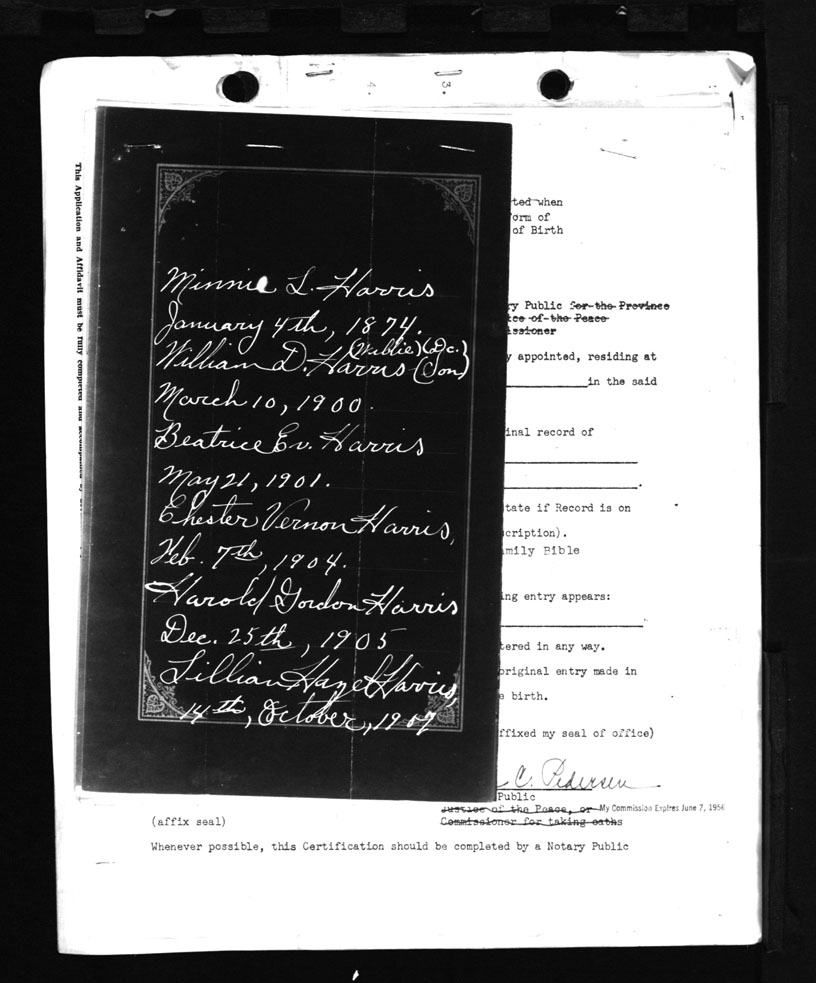 3.
4.
This Application and Affidavit must be fully completed and accompanied by
ted when
orm of
of Birth
Minnie L. Harris
January 4th, 1874.
William D. Harris (Willie)(Dc.) (Son)
March 10, 1900.
Beatrice Ev. Harris
May 21, 1901.
Chester Vernon Harris,
Feb. 7th, 1904.
Harold Gordon Harris
Dec. 25th, 1905
Lillian Hazel Harris,
14th, October, 1907
ry Public for the Province
ce of the Peace
issioner
y appointed, residing at
in the said
inal record of
tate if Record is on
cription).
mily Bible
ng entry appears:
tered in any way.
original entry made in
e birth.
ffixed my seal of office)
C. Pedersen
Public
Justice of the Peace, or My Commission Expires June 7, 1956
(affix seal) Commissioner for taking oaths
Whenever possible, this Certification should be completed by a Notary Public